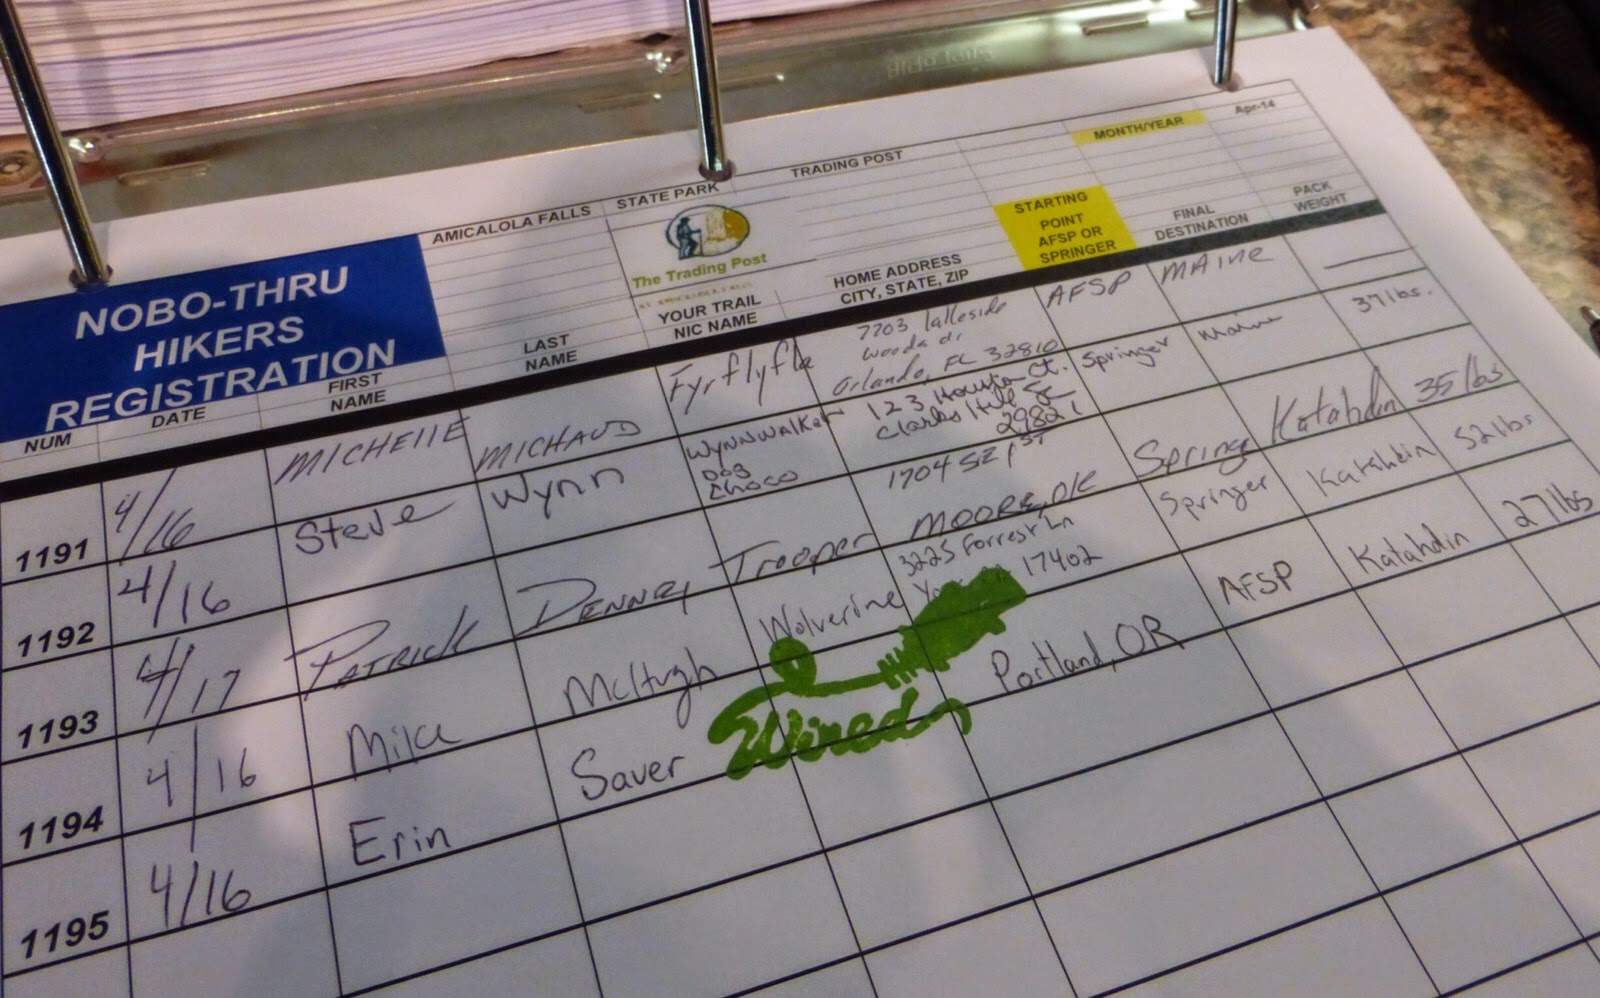 Apr-14
MONTH/YEAR
AMICALOLA FALLS STATE PARK TRADING POST
The Trading Post
NOBO-THRU
HIKERS
REGISTRATION
NUM DATE FIRST NAME LAST NAME YOUR TRAIL NIC NAME HOME ADDRESS CITY, STATE, ZIP STARTING POINT AFSP OR SPRINGER FINAL DESTINATION PACK WEIGHT
1191 4/16 MICHELLE MICHAUD Fyrflyfla 7703 lakeside woods dr Orlando, FL 32810 AFSP MAINE
1192 4/16 Steve Wynn WYNNWALKER Dog Choco 123 Ct. Clarks Hill SC 29821 Springer Maine 37 lbs.
1193 4/17 PATRICK DENNEY Trooper 1704 SE 1ST MOORE, OK Springer Katahdin 35 lbs
1194 4/16 Mike McHugh Wolverine 3225 Forrest Ln 17402 Springer Katahdin 52 lbs
1195 4/16 Erin Saver Wired Portland, OR AFSP Katahdin 27 lbs